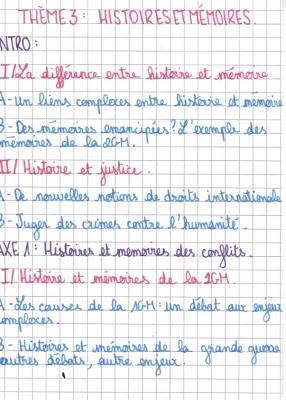 THÈME 3 : HISTOIRES ET MÉMOIRES.
NTRO :
I/ La différence entre histoire et mémoire
A - un liens complexes entre histoire et mémoire
B - Des mémoires emancipées ? L'exemple des
mémoires de la 2GM.
II/ Histoire et justice.
A - De nouvelles notions de droits internationale
B - Juger des crimes contre l'humanité.
AXE 1 : Histoires et memoires des conflits.
I/ Histoire et mémoires de la 1GM.
A - Les causes de la 1GM : un débat aux enjeux
omplexes.
B - Histoires et mémoires de la grande guerre
autres débats, autre enjeux.